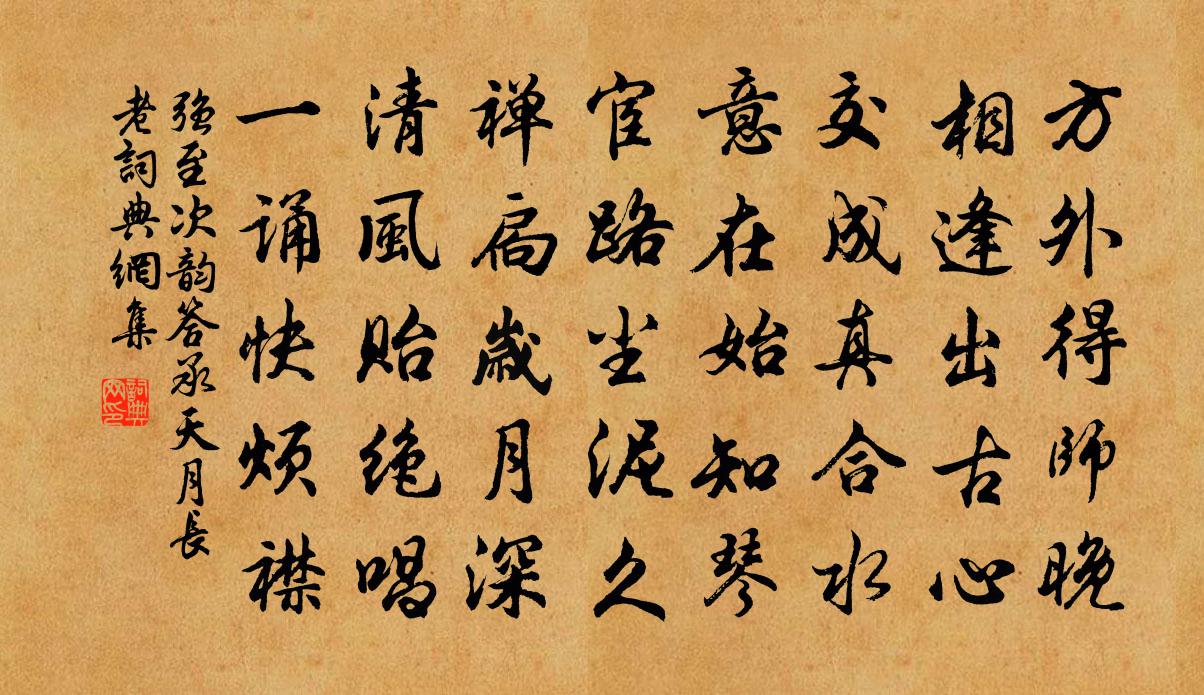 方外得師晚
相逢出古心
交成真合水
意在始知琴
宦路坐泥久
禅扃歲月深
清風貽絶唱
一誦快煩襟
強至次韵答承天月長
老詞典網集
詞典網印